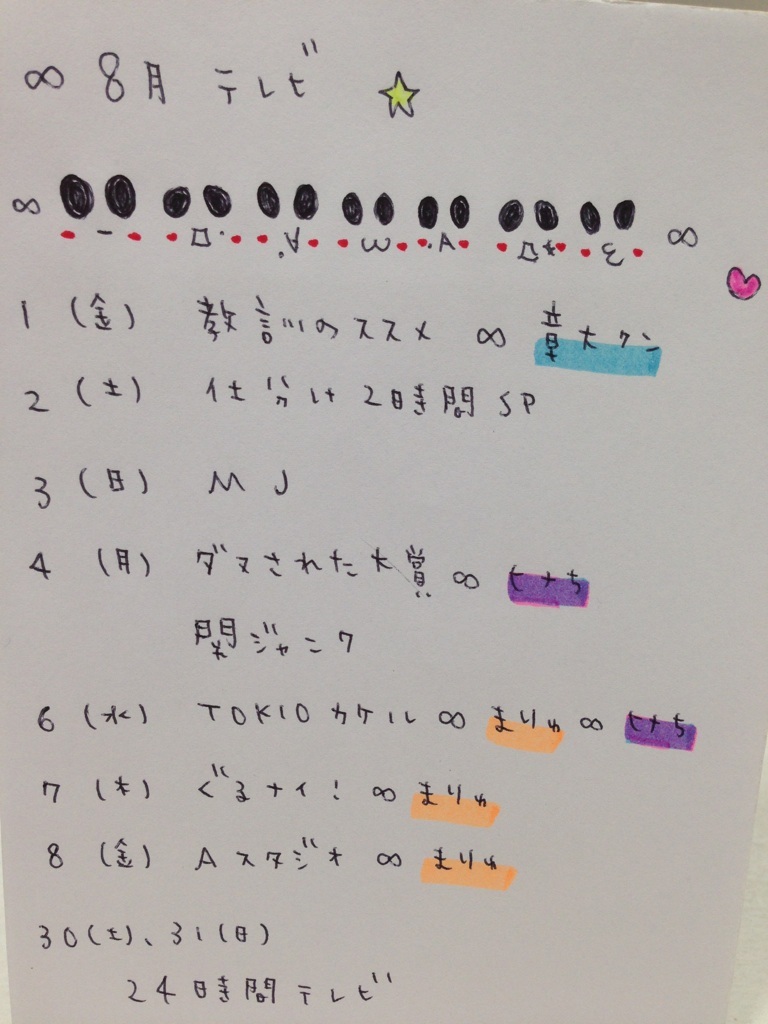 ∞ 8月 テレビ
∞ ∞
1 (金) 教訓のススメ ∞ 章大クン
2 (土) 仕分け2時間SP
3 (日) MJ
4 (月) ダマされた大賞 ∞ ヒナち
関ジャニ7
6 (水) TOKIOカケル ∞ まりゅ ∞ ヒナち
7 (木) ぐるナイ! ∞ まりゅ
8 (金) Aスタジオ ∞ まりゅ
30(土)、31(日)
24時間テレビ